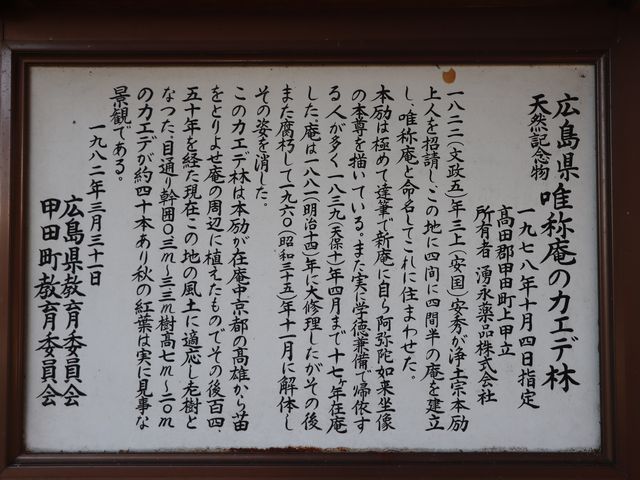 広島県
天然記念物
唯称庵のカエデ林
一九七八年十月四日指定
高田郡甲田町上甲立
所有者 湧永薬品株式会社
一八二二(文政五)年三上(安国)安秀が浄土宗本励
上人を招請し、この地に四間に四間半の庵を建立
し、唯称庵と命名してこれに住まわせた。
本励は極めて達筆で新庵に自ら阿弥陀如来坐像
の本尊を描いている。また実に学徳兼備で帰依す
る人が多く一八三九(天保十)年四月まで十七ヶ年在庵
した。庵は一八八一(明治十四)年に大修理したがその後
また腐朽して一九六〇(昭和三十五)年十一月に解体し
その姿を消した。
このカエデ林は本励が在庵中京都の高雄から苗
をとりよせ庵の周辺に植えたものでその後百四、
五十年を経た現在この地の風土に適応し老樹と
なつた、目通り幹囲〇.三m〜三.三m樹高七m〜二〇m
のカエデが約四十本あり秋の紅葉は実に見事な
景観である。
一九八二年三月三十一日
広島県教育委員会
甲田町教育委員会